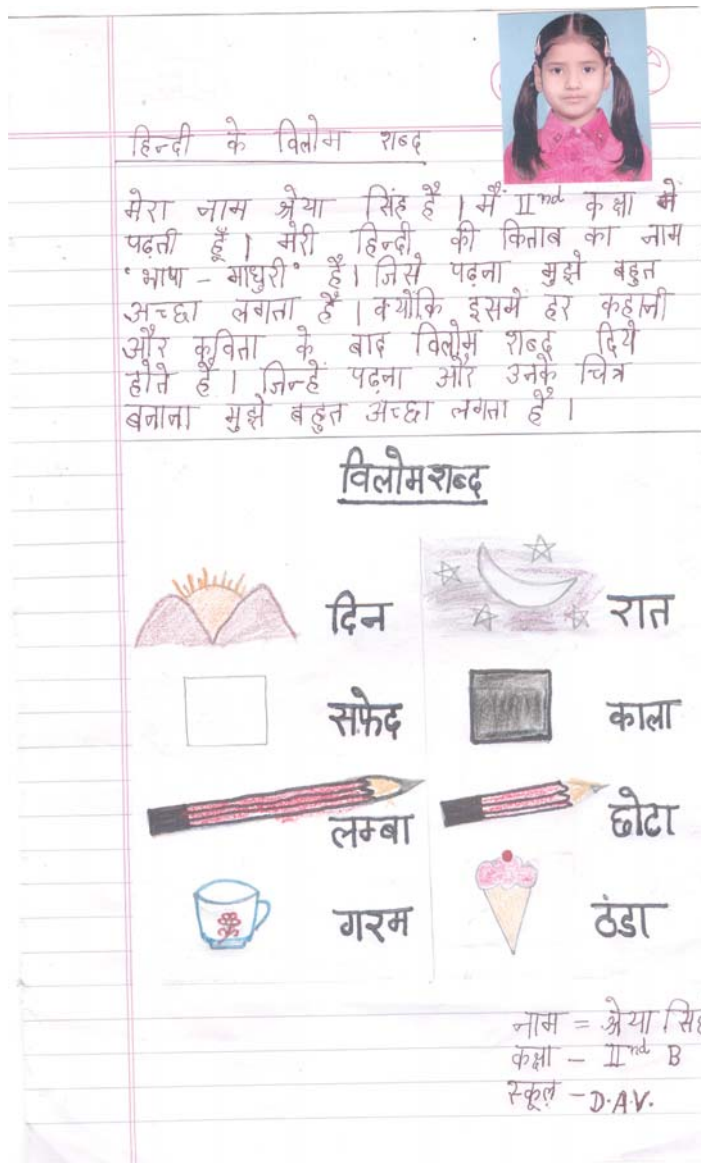 हिन्दी के विलोम शब्द
मेरा नाम श्रेया सिंह है । मैं IInd कक्षा में
पढ़ती हूँ । मेरी हिन्दी की किताब का नाम
"भाषा - माधुरी" है । जिसे पढ़ना मुझे बहुत
अच्छा लगता है । क्योंकि इसमें हर कहानी
और कविता के बाद विलोम शब्द दिये
होते हैं । जिन्हें पढ़ना और उनके चित्र
बनाना मुझे बहुत अच्छा लगता है ।
विलोम शब्द
दिन रात
सफेद काला
लम्बा छोटा
गरम ठंडा
नाम = श्रेया सिंह
कक्षा - IInd B
स्कूल - D.A.V.